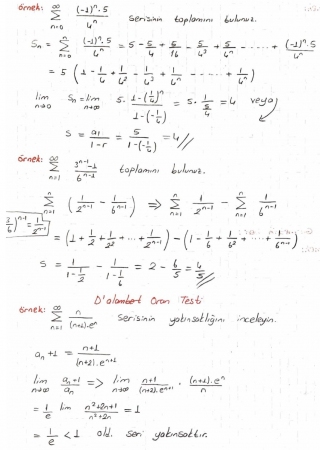 örnek: ∞∑n=0 (-1)ⁿ.5/4ⁿ serisinin toplamını bulunuz.
Sn = n∑n=0 (-1)ⁿ.5/4ⁿ = 5 - 5/4 + 5/16 - 5/4³ + 5/4ⁿ - ..... + (-1)ⁿ.5/4ⁿ
= 5 (1 - 1/4 + 1/4² - 1/4³ + 1/4ⁿ - ..... + 1/4ⁿ)
lim n→∞ Sn = lim n→∞ 5. 1-(1/4)ⁿ/1-(-1/4) = 5. 1/(5/4) = 4 veya
S = a₁/1-r = 5/1-(-1/4) = 4//
örnek: ∞∑n=1 3ⁿ⁻¹-1/6ⁿ⁻¹ toplamını bulunuz.
n∑n=1 (1/2ⁿ⁻¹ - 1/6ⁿ⁻¹) ⇒ n∑n=1 1/2ⁿ⁻¹ - n∑n=1 1/6ⁿ⁻¹
(3/6)ⁿ⁻¹ = 1/2ⁿ⁻¹
= (1 + 1/2 + 1/2² + ... + 1/2ⁿ⁻¹) - (1 - 1/6 + 1/6² + ... + 1/6ⁿ⁻¹)
S = 1/1-1/2 - 1/1-1/6 = 2 - 6/5 = 4/5//
D'alambert Oran Testi
örnek: ∞∑n=1 n/(n+1).eⁿ serisinin yakınsaklığını inceleyin.
an+1 = n+1/(n+2).eⁿ⁺¹
lim n→∞ an+1/an => lim n→∞ n+1/(n+2).eⁿ⁺¹ . (n+1).eⁿ/n
= 1/e lim n²+2n+1/n²+2n = 1
= 1/e < 1 old. seri yakınsaktır.